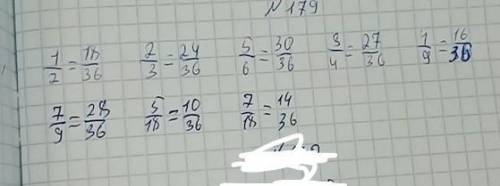 №179
1/2 = 18/36 2/3 = 24/36 5/6 = 30/36 3/4 = 27/36 1/9 = 16/36
7/9 = 28/36 5/18 = 10/36 7/18 = 14/36